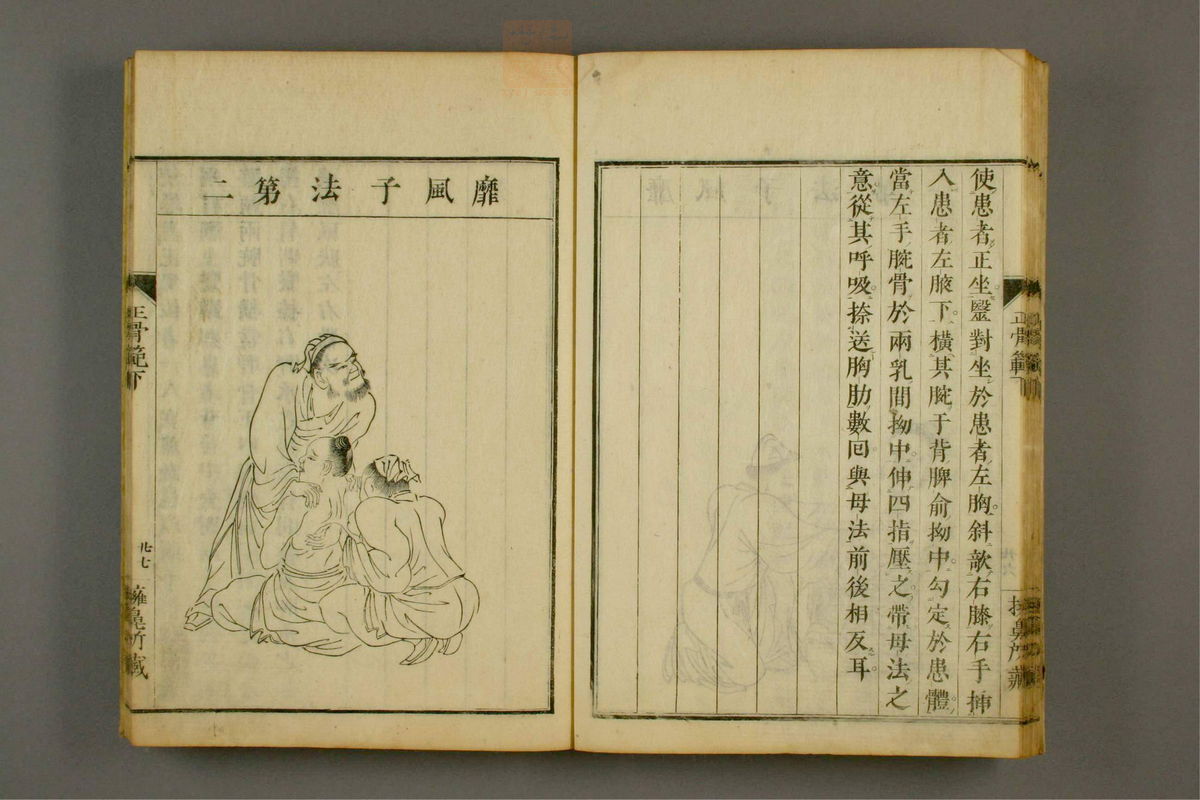 使患者正坐毉對坐於患者左胸斜歆右膝右手揷
入患者左腋下橫其腕于背脾俞拗中勾定於患體
當左手腕骨於兩乳間拗中伸四指壓之帶母法之
意從其呼吸捺送胸肋數回與母法前後相反耳
正骨範
靡風子法第二
正骨範下
廿七